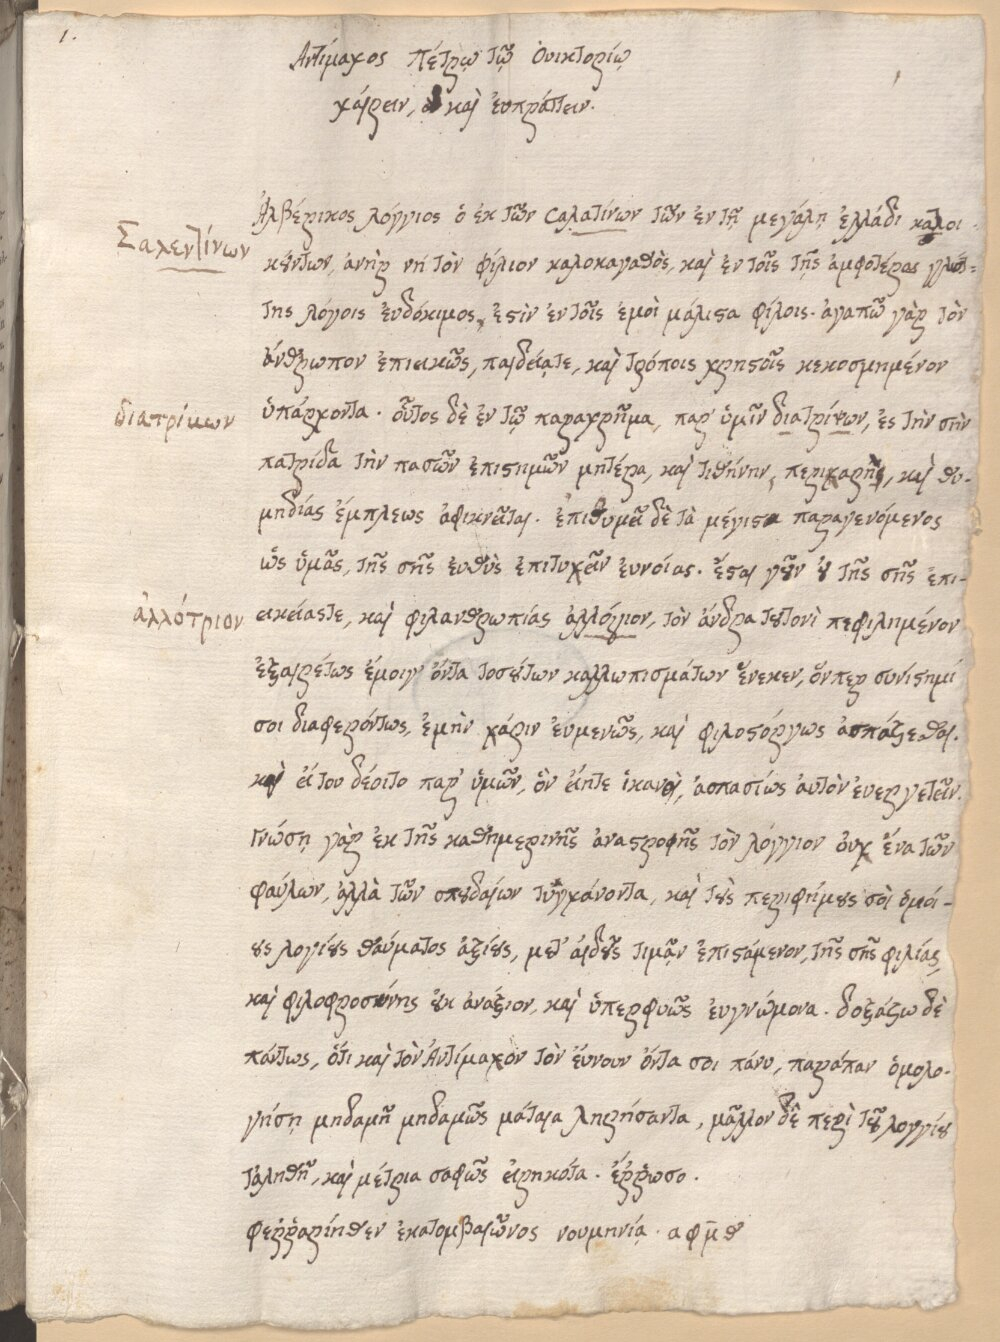 1.
Ἀντίμαχος Πέτρῳ τῷ Ὀυικτορίῳ
χαίρειν, καὶ ἐυπράττειν.
Ἀλβέρικος λόγγιος ὁ ἐκ τῶν σαλατίνων τῶν ἐν τῇ μεγάλῃ ἐλλάδι κατοι-
Σαλεντίνων
κούντων, ἀνὴρ νὴ τὸν φίλιον καλοκαγαθὸς, καὶ ἐν τοῖς τῆς ἀμφοτέρας γλώτ-
της λόγοις ἐνδόκιμος, ἐστὶν ἐν τοῖς ἐμοὶ μάλιστα φίλοις. ἀγαπῶ γὰρ τὸν
ἄνθρωπον ἐπιεικῶς, παιδείᾳτε, καὶ τρόποις χρηστοῖς κεκοσμημένον
ὑπάρχοντα. οὗτος δὲ ἐν τῷ παραχρῆμα, παρ' ὑμῖν διατρίψων, ἐς τὴν σὴν
διατρίψων
πατρίδα τὴν πασῶν ἐπιστημῶν μητέρα, καὶ τιθήνην, περιχαρὴς, καὶ θυ-
μηδίας ἔμπλεως ἀφικνεῖται. ἐπιθυμεῖ δὲ τὰ μέγιστα παραγενόμενος
ὡς ὑμᾶς, τῆς σῆς ἐυθὺς ἐπιτυχεῖν ἐυνοίας. ἔσται γοῦν οὐ τῆς σῆς ἐπι-
εικείαςτε, καὶ φιλανθρωπίας ἀλλόγιον, τὸν ἄνδρα τουτονὶ πεφιλημένον
ἀλλότριον
ἐξαιρέτως ἔμοιγ' ὄντα τοσούτων καλλωπισμάτων ἕνεκεν, ὅνπερ συνίστημί
σοι διαφερόντως, ἐμὴν χάριν ἐυμενῶς, καὶ φιλοστόργως ἀσπάζεσθαι.
καὶ εἴ του δέοιτο παρ' ὑμῶν, ὃν εἴητε ἱκανοὶ, ἀσπασίως ἀυτὸν ἐυεργετεῖν.
Γνώσῃ γὰρ ἐκ τῆς καθημερινῆς ἀναστροφῆς τὸν λόγγιον ὀυχ ἕνα τῶν
φαύλων, ἀλλὰ τῶν σπουδαίων τυγχάνοντα, καὶ τοὺς περιφήμους σὸὶ ὁμοί-
ους λογίους θαύματος ἀξίους, μετ' αἰδοῦς τιμᾷν ἐπιστάμενον, τῆς σῆς φιλίας,
καὶ φιλοφροσύνης οὐκ ἀνάξιον, καὶ ὑπερφυῶς ἐυγνώμονα. δοξάζω δὲ
πάντως, ὅτι καὶ τὸν Ἀντίμαχον τὸν ἔυνουν ὄντα σοι πάνυ, παράπαν ὁμολο-
γήσῃ μηδαμῆ μηδαμῶς μάταια ληρήσαντα, μᾶλλον δὲ περὶ τοῦ λογγίου
τἀληθῆ, καὶ μέτρια σαφῶς εἰρηκότα. ἔῤῥωσο.
φεῤῥαρίηθεν ἑκατομβαιῶνος νουμηνίᾳ. αφμθ